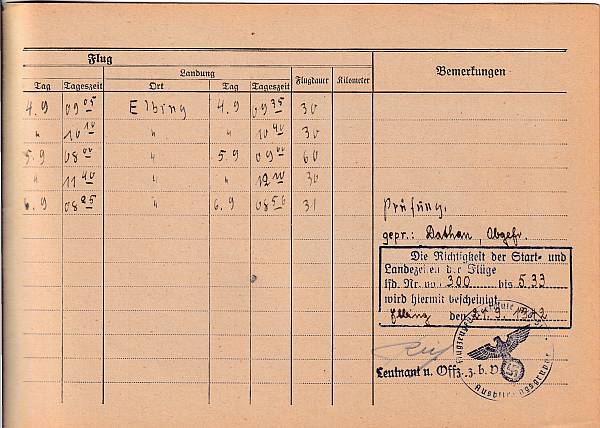 Flug
Landung
Tag Tageszeit Ort Tag Tageszeit Flugdauer Kilometer Bemerkungen
4.9 09 05 Elbing 4.9 09 35 30
" 10 10 " " 10 40 30
5.9 08 00 " 5.9 09 00 60
" 11 40 " " 12 10 30
6.9 08 25 " 6.9 08 56 31
Prüfung.
gepr.: Dathan, Obgefr.
Die Richtigkeit der Start- und
Landezeiten der Flüge
lfd. Nr. von 300 bis 533
wird hiermit bescheinigt
Elbing den 9.
Leutnant u. Offz. z. b. V.